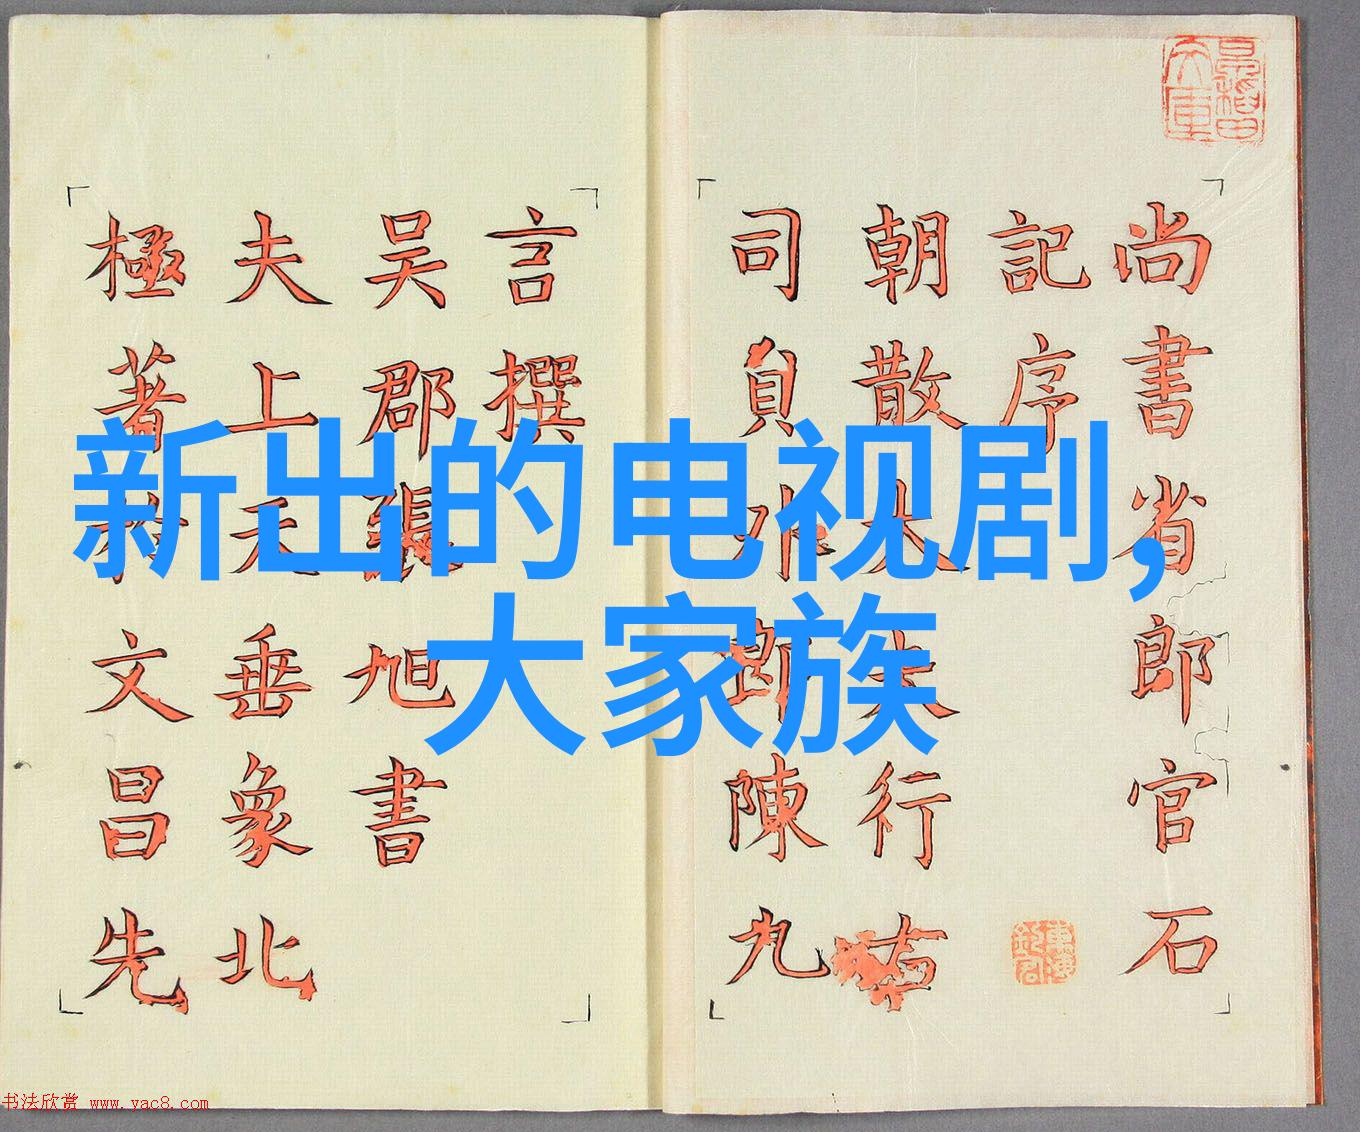 新出的电视剧,
大家族
尚書省郎官石
記序
朝散大夫行右
司員外郎陳九
言撰
吴郡張旭書
夫上天垂象北
極著文昌先
书法欣赏 www.yac8.com